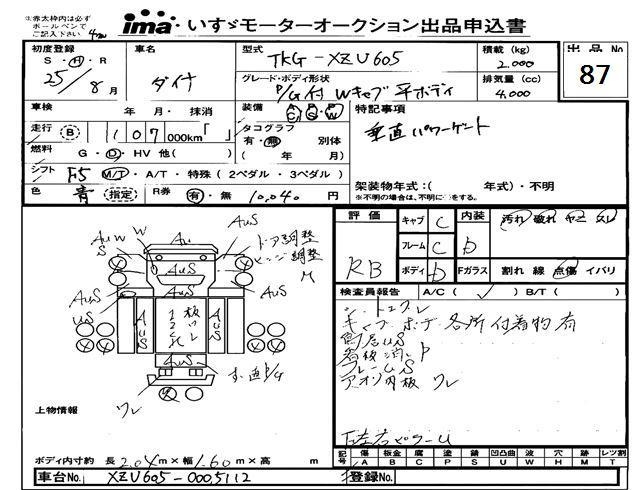 ※赤太枠内は必ず
ボールペンで
ご記入下さい
ima いすゞモーターオークション出品申込書
出品 No
87
初度登録
S・H・R
25/8月
車名
ダイナ
型式
TKG-XZU605
積載 (kg)
2,000
グレード・ボディ形状
P/G付 Wキャブ 平ボディ
排気量 (cc)
4,000
車検
年 月・抹消
装備
AC PS PW
特記事項
垂直パワーゲート
走行
B 107000km「 」
タコグラフ
有・無 別体
( 年 月)
燃料
G・D・HV 他( )
シフト
F5 M/T・A/T・特殊(2ペダル・3ペダル)
架装物年式:( 年式)・不明
※不明の場合は、不明に○をする。
色
青 (指定)
R券
有・無 10,040 円
評価
RB
キャブ C
フレーム C
ボディ b
内装 b
汚れ 破れ ヤニ スレ
Fガラス 割れ 線 点傷 イバリ
検査員報告 A/C( ✓ ) B/T( )
キャブ ボデー各所付着物有
アオリ内板 ワレ
AuW W
S
Au
AuS
ドア調整
ヒンジ調整
M
AuS
AuS
AuS
uS
AuS
AuS
AuS
板
ワレ
AuS
垂直P/G
ワレ
上物情報
ボディ内寸約 長 2.04m×幅 1.60m×高 m
記号
傷 板金 腐 塗 錆 凹凸曲 波 穴 時 レツ割
A B C P S U W H M T
車台No. XZU605-0005112
登録No.